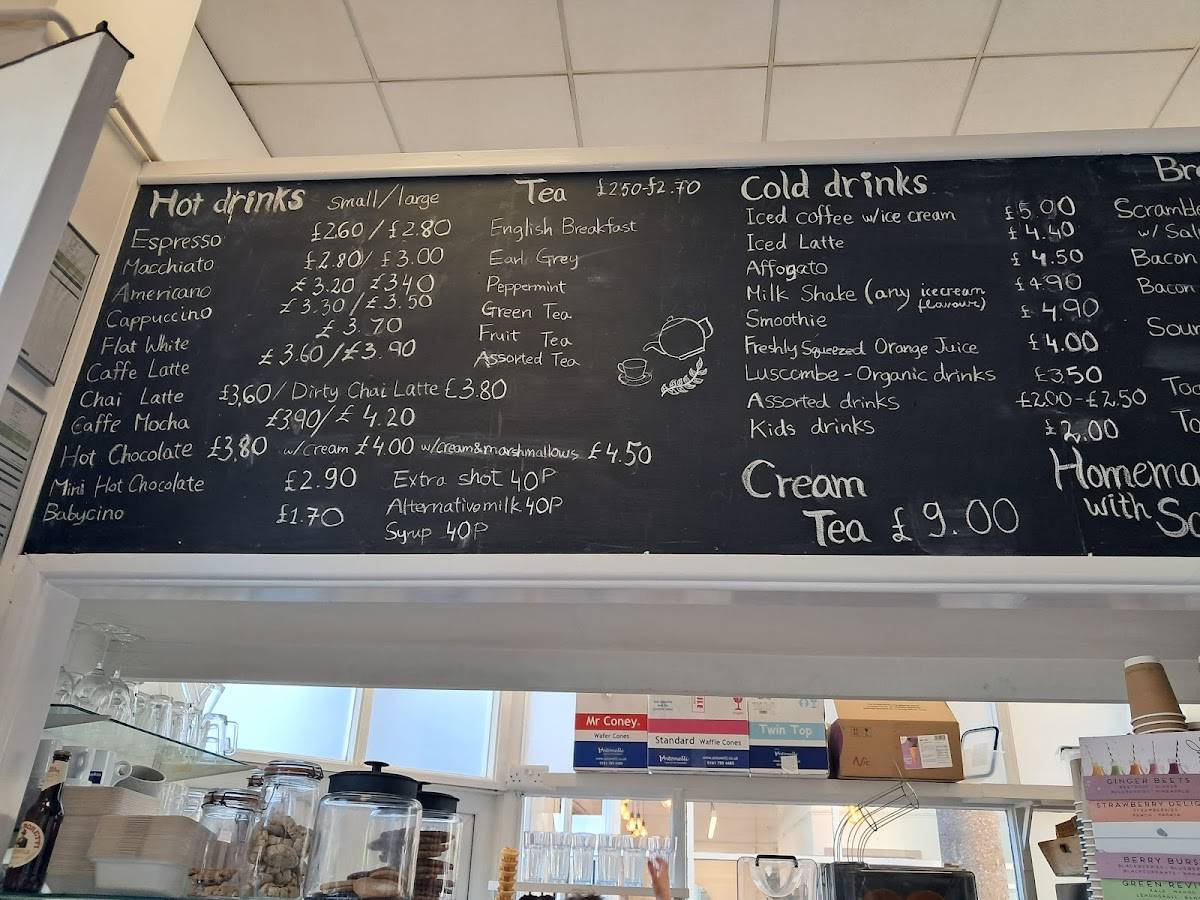 Hot drinks small/large
Espresso £2.60 / £2.80
Macchiato £2.80/ £3.00
Americano £3.20 £3.40
Cappuccino £3.30/£3.50
Flat White £3.70
Caffe Latte £3.60/£3.90
Chai Latte £3,60/ Dirty Chai Latte £3.80
Caffe Mocha £3.90/£ 4.20
Hot Chocolate £3,80 w/cream £4.00 w/cream&marshmallows £4.50
Mini Hot Chocolate £2.90
Babycino £1.70
Extra shot 40P
Alternative milk 40P
Syrup 40P
Tea £2.50-£2.70
English Breakfast
Earl Grey
Peppermint
Green Tea
Fruit Tea
Assorted Tea
Cold drinks
Iced coffee w/ice cream £5.00
Iced Latte £4.40
Affogato £4.50
Milk Shake (any icecream flavour) £4.90
Smoothie £4.90
Freshly Squeezed Orange Juice £4.00
Luscombe - Organic drinks £3.50
Assorted drinks £2.00-£2.50
Kids drinks £2.00
Cream
Tea £9.00
Br
Scramble
w/ Sal
Bacon
Bacon
Sou
To
To
Homema
with So
Mr Coney
Wafer Cones
Antonelli
Standard Waffle Cones
Antonelli
Twin Top
GINGER BEETS
STRAWBERRY DELIG
BERRY BURS
GREEN REVI